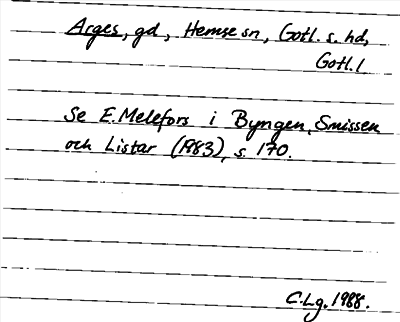 Arges, gd, Hemse sn, Gotl. s. hd,
Gotl. l
Se E. Melefors i Byngen, Smissen
och Listar (1983), s. 170.
C.Lg. 1988.